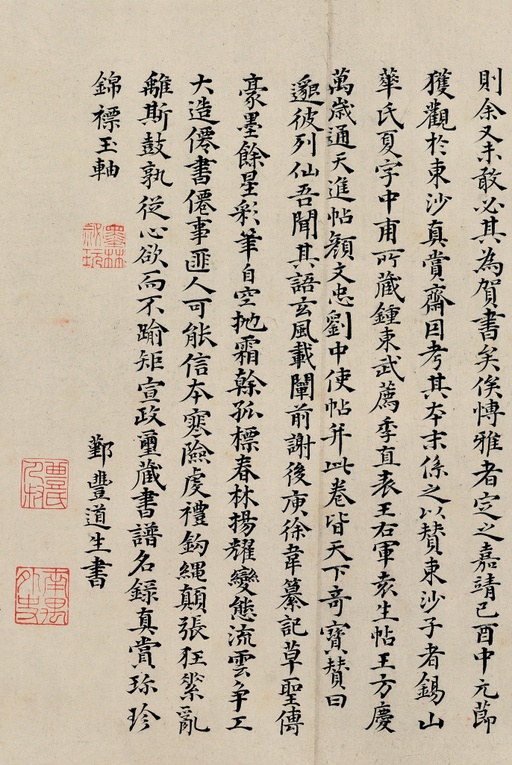 則余又未敢必其為賀書矣俟愽雅者定之嘉靖己酉中元節
獲觀於東沙真賞齋因考其本末係之以賛東沙子者錫山
華氏夏字中甫所藏鍾東武薦季直表王右軍袁生帖王方慶
萬歲通天進帖顏文忠劉中使帖并此卷皆天下奇寶賛曰
邈彼列仙吾聞其語玄風載闡前謝後庾徐韋纂記草聖傳
豪墨餘星彩筆自空抛霜榦孤標春林揚耀變態流雲爭工
大造僊書僊事匪人可能信本寒險虔禮鈎繩顛張狂縈亂
離斯鼓孰從心欲而不踰矩宣政璽藏書譜名錄真賞珎珍
錦褾玉軸
鄞豐道生書
墨林祕玩
豐氏人叔
南禺外史